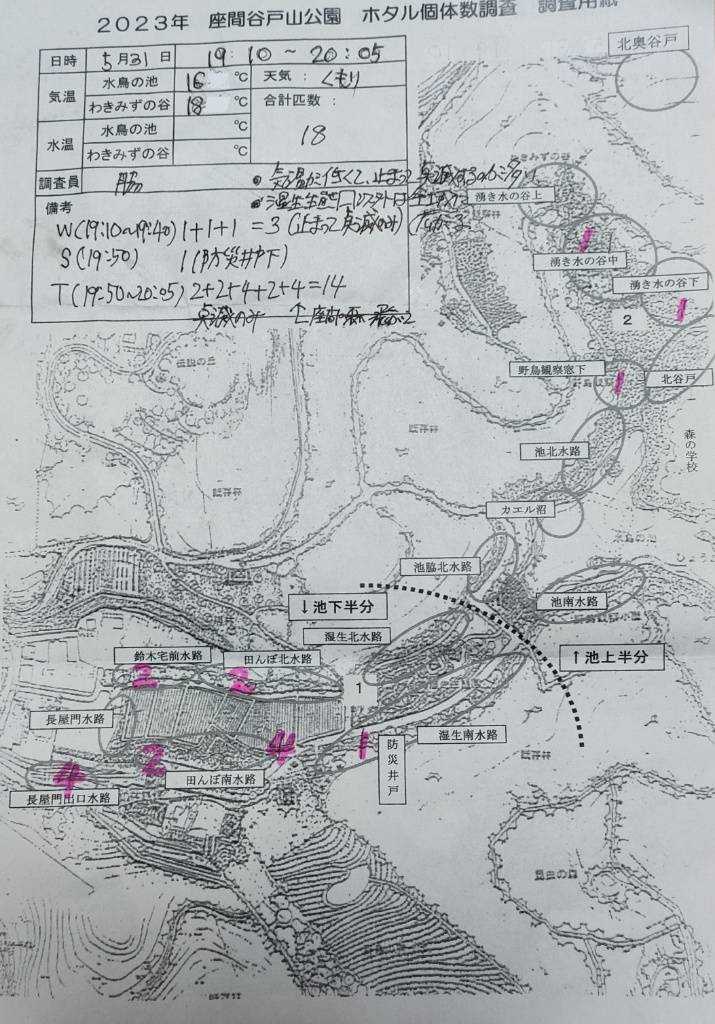 2023年 座間谷戸山公園 ホタル個体数調査 調査用紙
日時 5月31日 19:10～20:05
気温 水鳥の池 16℃ 天気: くもり
わきみずの谷 18℃ 合計匹数: 18
水温 水鳥の池 ℃
わきみずの谷 ℃
調査員 脇
備考
・気温が低くて、止まって点滅するのが多い
W(19:10～19:40) 1+1+1=3 (止まって点滅のみ)
S(19:50) 1(防災井戸下)
T(19:50～20:05) 2+2+4+2+4=14
点滅のみ
北奥谷戸
湧き水の谷上
湧き水の谷中
1
湧き水の谷下
1
2
野鳥観察窓下
1
北谷戸
森の学校
池北水路
カエル沼
水鳥の池
池脇北水路
池南水路
↓池下半分
湿生北水路
↑池上半分
鈴木宅前水路
2
田んぼ北水路
2
1
長屋門水路
湿生南水路
防災井戸
1
4
2
田んぼ南水路
4
長屋門出口水路
伝説の丘
昆虫の森